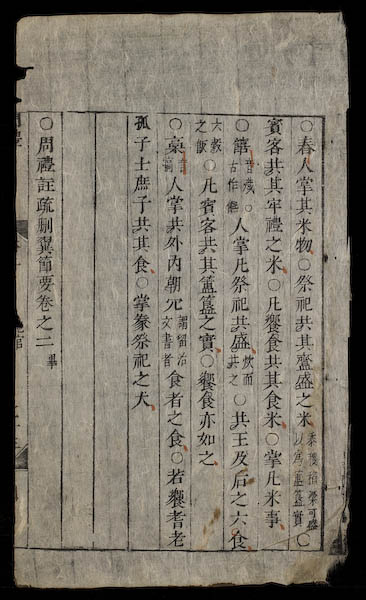 ○舂人掌共米物○祭祀共其齍盛之米黍稷稻粱可盛以爲簠簋實○
賓客共其牢禮之米○凡饗食共其食米○掌凡米事
○饎古作𩟄○人掌凡祭祀共盛炊而共之○共王及后之六食
六穀之飯○凡賓客共其簠簋之實○饗食亦如之
○槀人掌共外內朝冗謂留治文書者食者之食○若饗耆老
孤子士庶子共其食○掌豢祭祀之犬
○周禮註疏刪翼節要卷之二畢